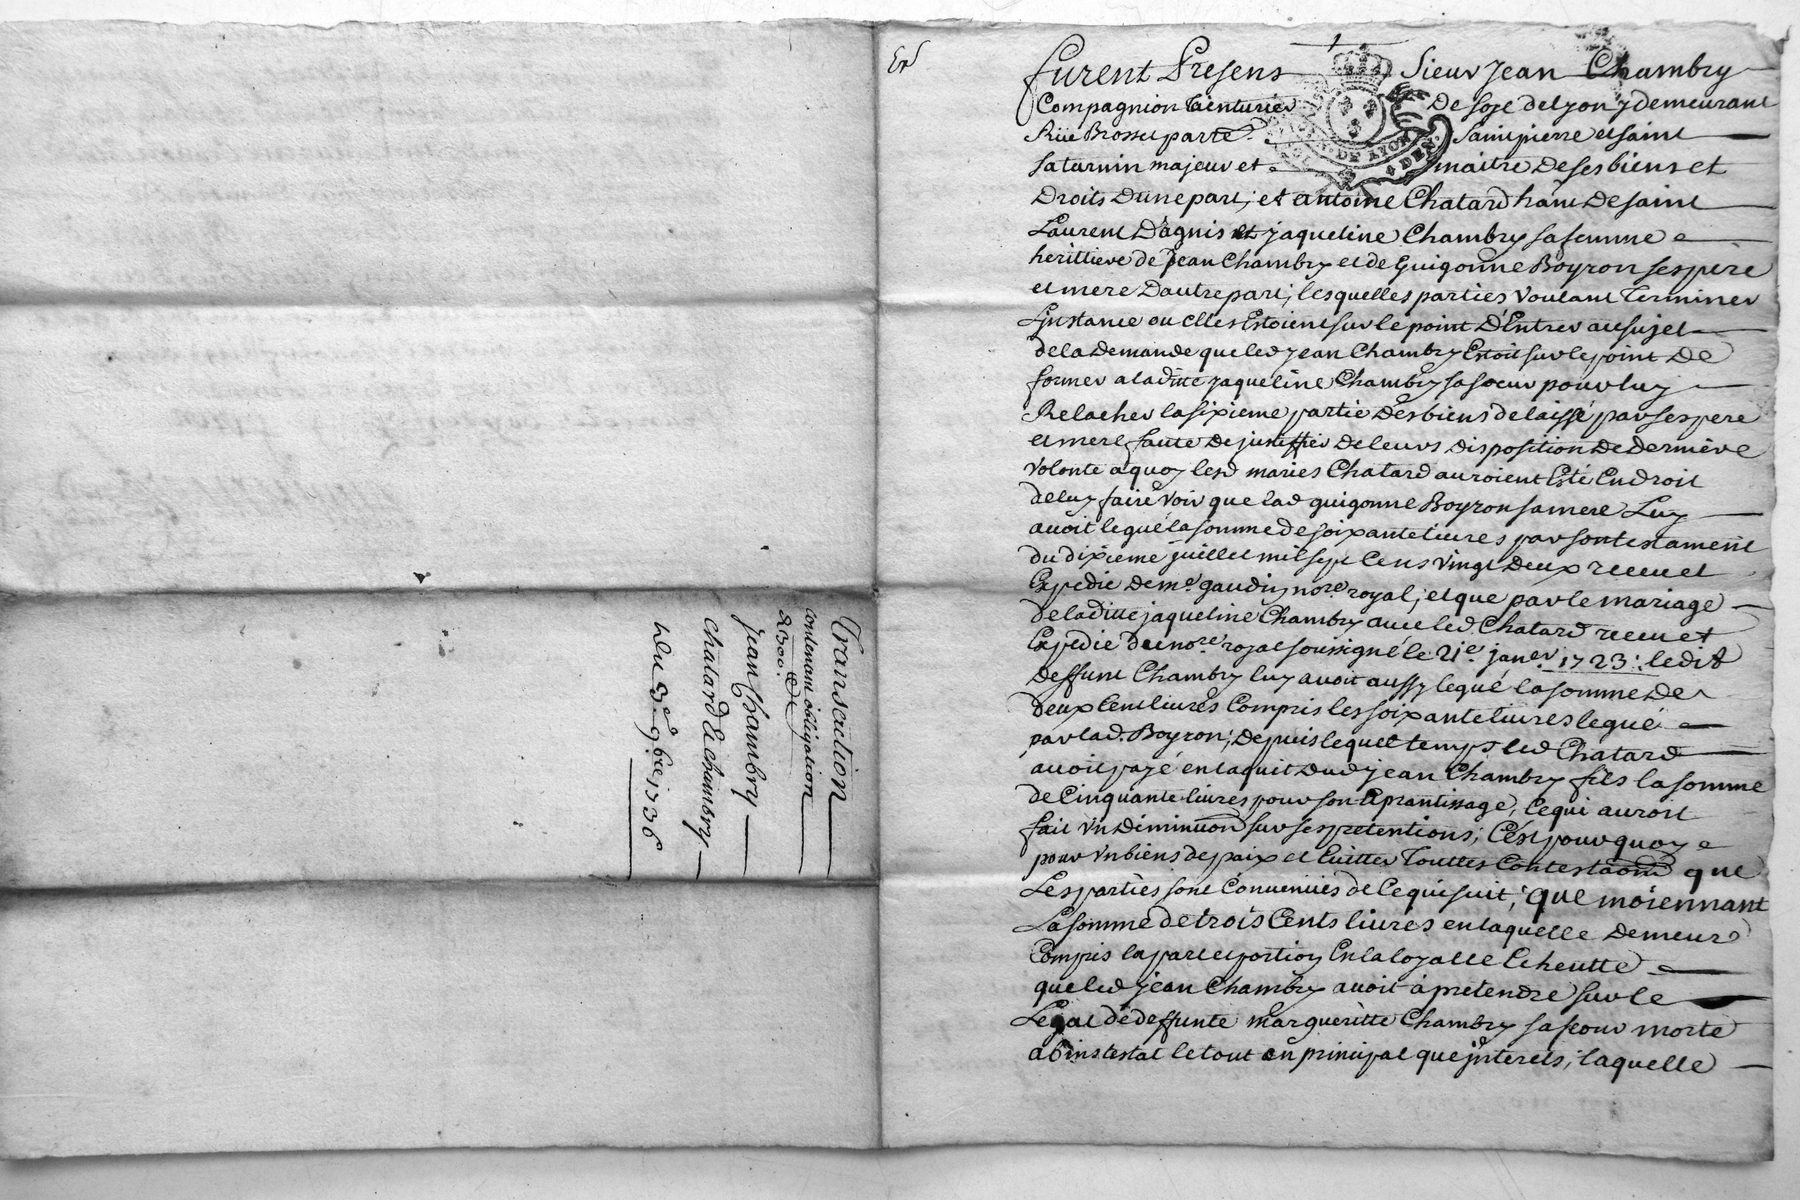 Transaction
contenant obligation
de 300
De
jean Chambry
chatard & chambry
Du 3e 9bre 1736
furent Presens Sieur Jean Chambry
Compagnion teinturier De soye de lyon y demeurant
Rüe Brosse parte saint pierre et saint
saturnin majeur et maitre De ses biens et
Droits Dune part; et antoine Chatard hant De saint
Laurent D'agnis et jaqueline Chambry sa femme
herittiere de jean Chambry et de Guigonne Boyron ses pere
et mere Dautre part; lesquelles parties voulant Terminer
Linstance ou elles Estoient sur le point D'Entrer au sujet
de la Demande que led jean Chambry Estoit sur le point De
former a laditte jaqueline Chambry sa soeur pour luy
Relacher la sixieme partie Des biens delaissé par ses pere
et mere faute De justiffier De leurs Disposition De derniere
volonte a quoy lesd maries Chatard auroient Esté En droit
de luy faire voir que lad guigonne Boyron sa mere Luy
auoit legué la somme de soixante liures par son testament
du dixieme juillet mil sept Cens vingt Deux receu et
Expedie De me gaudin nore royal; et que par le mariage
de laditte jaqueline Chambry auec led. Chatard receu et
Expedie du nore royal soussigné le 21e janer 1723: ledit
Deffunt Chambry luy auoit aussy legué la somme De
deux Cent liures Compris les soixante liures legué
par lad. Boyron; Depuis lequel temps led Chatard
auoit payé en laquit Dud jean Chambry fils la somme
de Cinquante liures pour son aprantissage, Ce qui auroit
fait vn Diminuon sur ses pretentions; C'est pourquoy
pour vn biens de paix et Euitter Touttes Contestaons que
Les parties sont Conuenües de Ce qui suit; que moiennant
La somme de trois Cents liures en laquelle Demeure
Compris la part et portion En la loyalle Echeutte
que led jean Chambry auoit à pretendre sur le
Legat de deffunte margueritte Chambry sa soeur morte
abinstestat le tout en principal que jnterets; laquelle